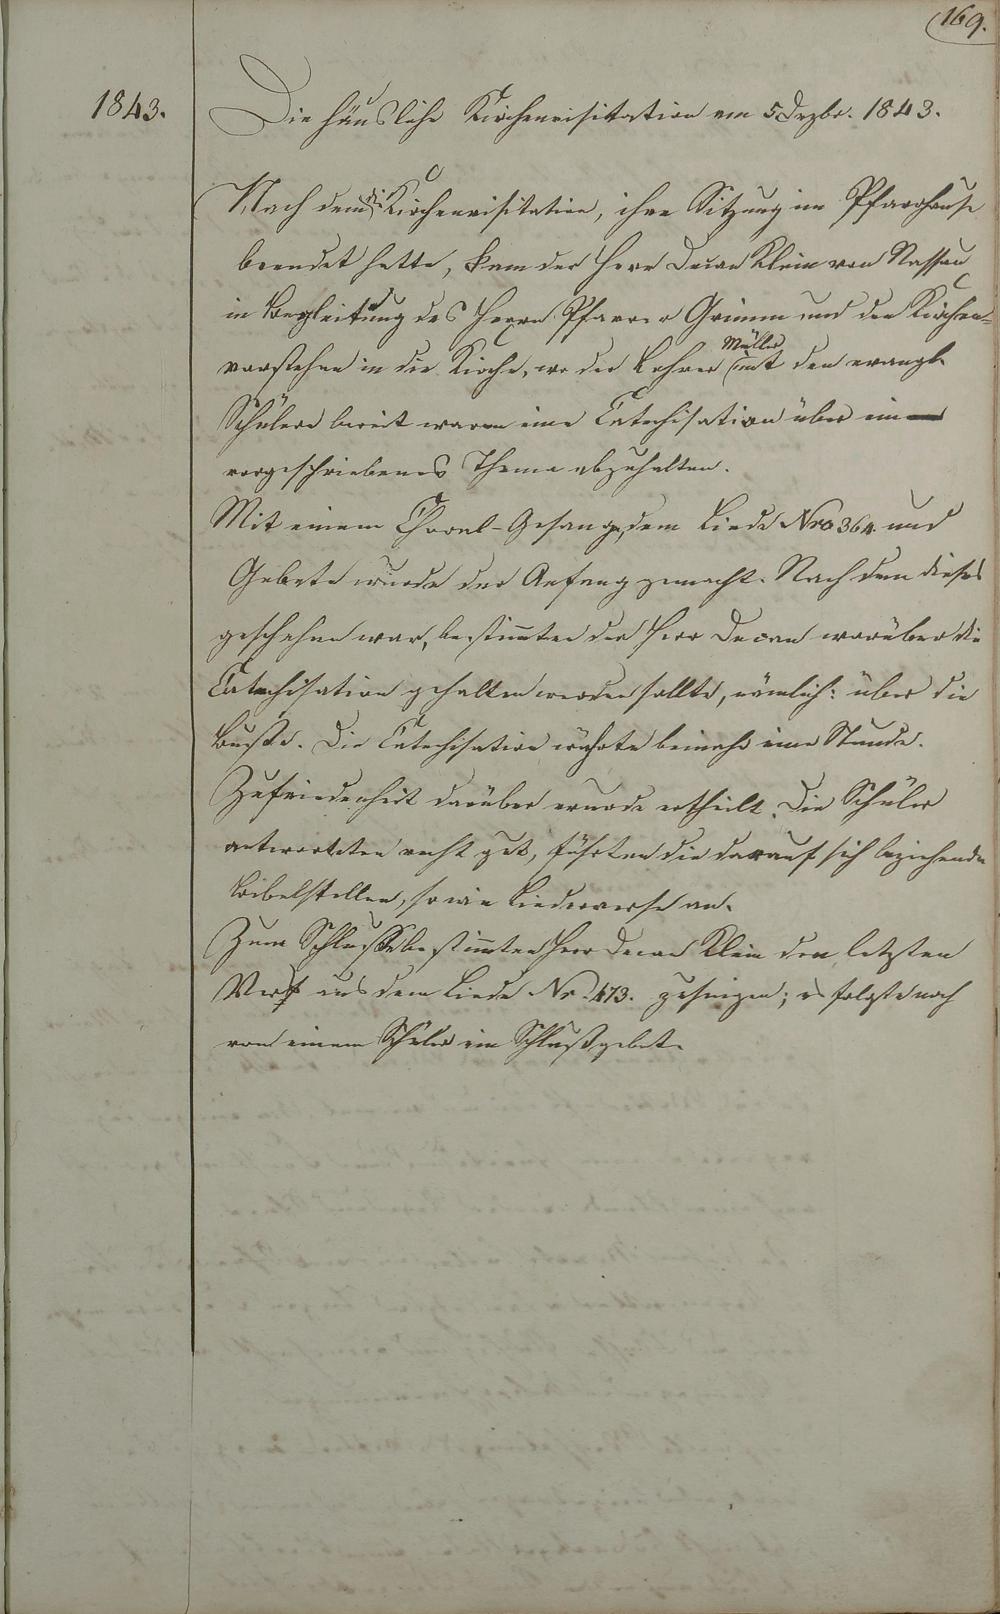 169.
1843.
Die häusliche Kirchenvisitation am 5 Dezbr. 1843.
Nach dem die Kirchenvisitation, ihre Sitzung im Pfarrhause
beendet hatte, kam der Herr Decan Klein von Nassau
in Begleitung des Herrn Pfarrer Grimm und den Kirchen-
vorstehern in die Kirche, wo der Lehrer Müller mit den evangl.
Schülern bereit waren eine Catechisation über ein
vorgeschriebenes Thema abzuhalten.
Mit einem Choral-Gesang, dem Liede Nro 364 und
Gebete wurde der Anfang gemacht. Nach dem dieses
geschehen war, bestimmte der Herr Decan worüber die
Catechisation gehalten werden sollte, nämlich: über die
Buße. Die Catechisation währte beinahe eine Stunde.
Zufriedenheit darüber wurde ertheilt. Die Schüler
antworteten recht gut, führten die darauf sich beziehenden
Bibelstellen, so wie Liederverse an.
Zum Schlusse bestimmte Herr Decan Klein den letzten
Vers aus dem Liede Nr. 473. zu singen; es folgte noch
von einem Schüler ein Schlußgebet.